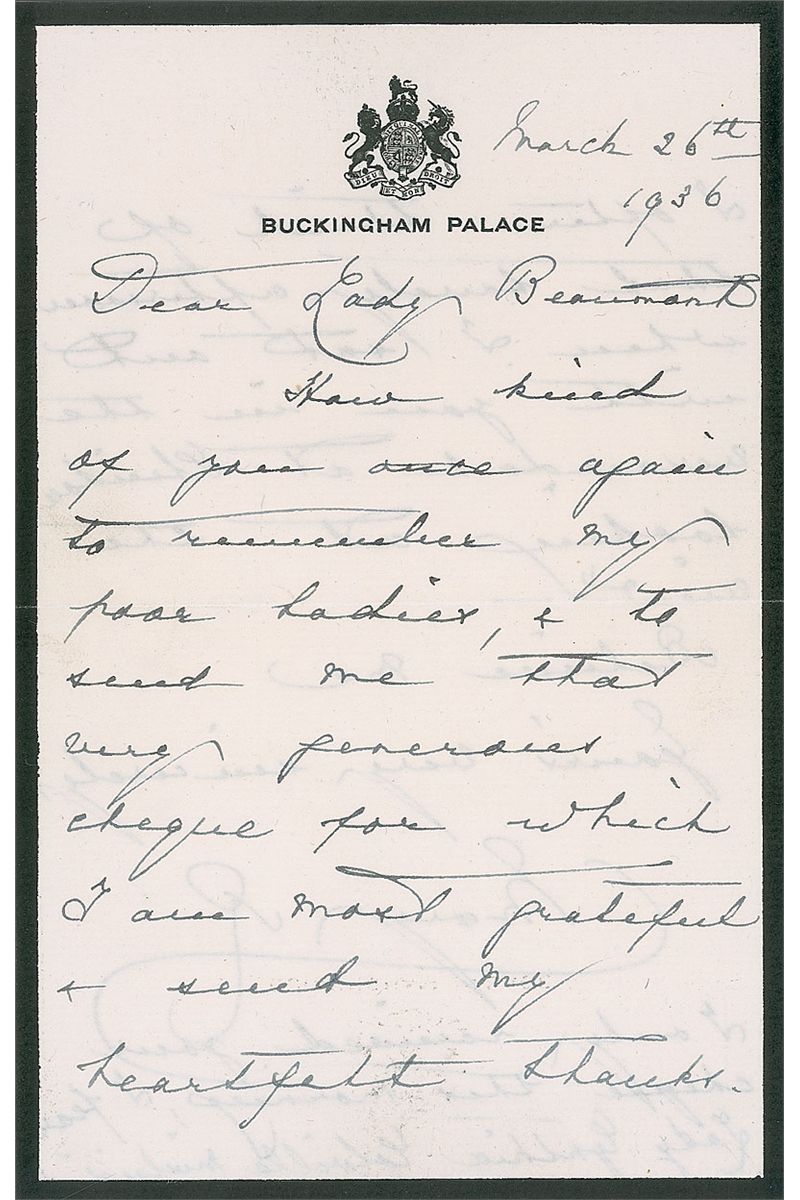 March 26th
1936
DIEU ET MON DROIT
BUCKINGHAM PALACE
Dear Lady Beaumont
How kind
of you once again
to remember my
poor ladies, & to
send me that
very generous
cheque for which
I am most grateful
& send my
heartfelt thanks.